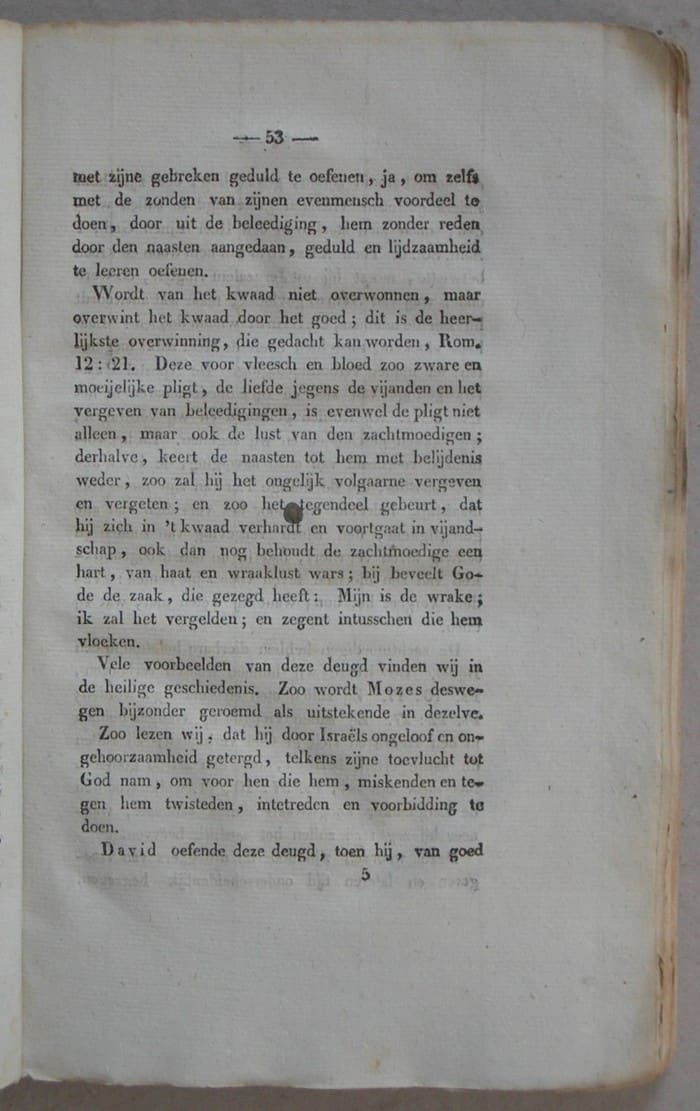 — 53 —
met zijne gebreken geduld te oefenen, ja, om zelfs
met de zonden van zijnen evenmensch voordeel te
doen, door uit de beleediging, hem zonder reden
door den naasten aangedaan, geduld en lijdzaamheid
te leeren oefenen.
Wordt van het kwaad niet overwonnen, maar
overwint het kwaad door het goed; dit is de heer-
lijkste overwinning, die gedacht kan worden, Rom.
12: 21. Deze voor vleesch en bloed zoo zware en
moeijelijke pligt, de liefde jegens de vijanden en het
vergeven van beleedigingen, is evenwel de pligt niet
alleen, maar ook de lust van den zachtmoedigen;
derhalve, keert de naasten tot hem met belijdenis
weder, zoo zal hij het ongelijk volgaarne vergeven
en vergeten; en zoo het tegendeel gebeurt, dat
hij zich in 't kwaad verhardt en voortgaat in vijand-
schap, ook dan nog behoudt de zachtmoedige een
hart, van haat en wraaklust wars; hij beveelt Go-
de de zaak, die gezegd heeft: Mijn is de wrake;
ik zal het vergelden; en zegent intusschen die hem
vloeken.
Vele voorbeelden van deze deugd vinden wij in
de heilige geschiedenis. Zoo wordt Mozes deswe-
gen bijzonder geroemd als uitstekende in dezelve.
Zoo lezen wij, dat hij door Israëls ongeloof en on-
gehoorzaamheid getergd, telkens zijne toevlucht tot
God nam, om voor hen die hem, miskenden en te-
gen hem twisteden, intetreden en voorbidding te
doen.
David oefende deze deugd, toen hij, van goed
5